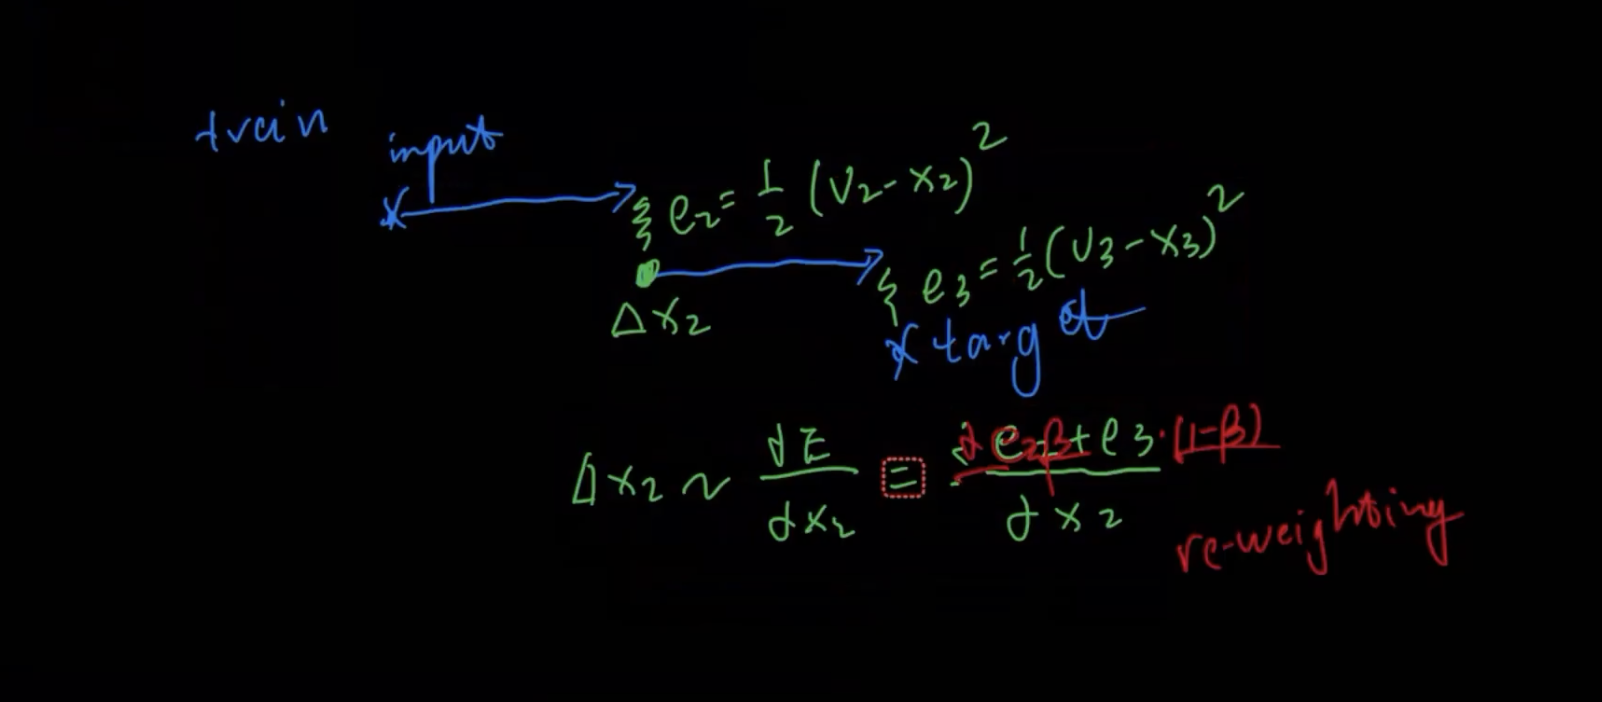 train
input
e₂ = 1/2 (V₂ - x₂)²
e₃ = 1/2 (V₃ - x₃)²
Δx₂
target
Δx₂ ~ ∂E/∂x₂ = ∂ e₂β + e₃ · (1-β) / ∂x₂
re-weighting